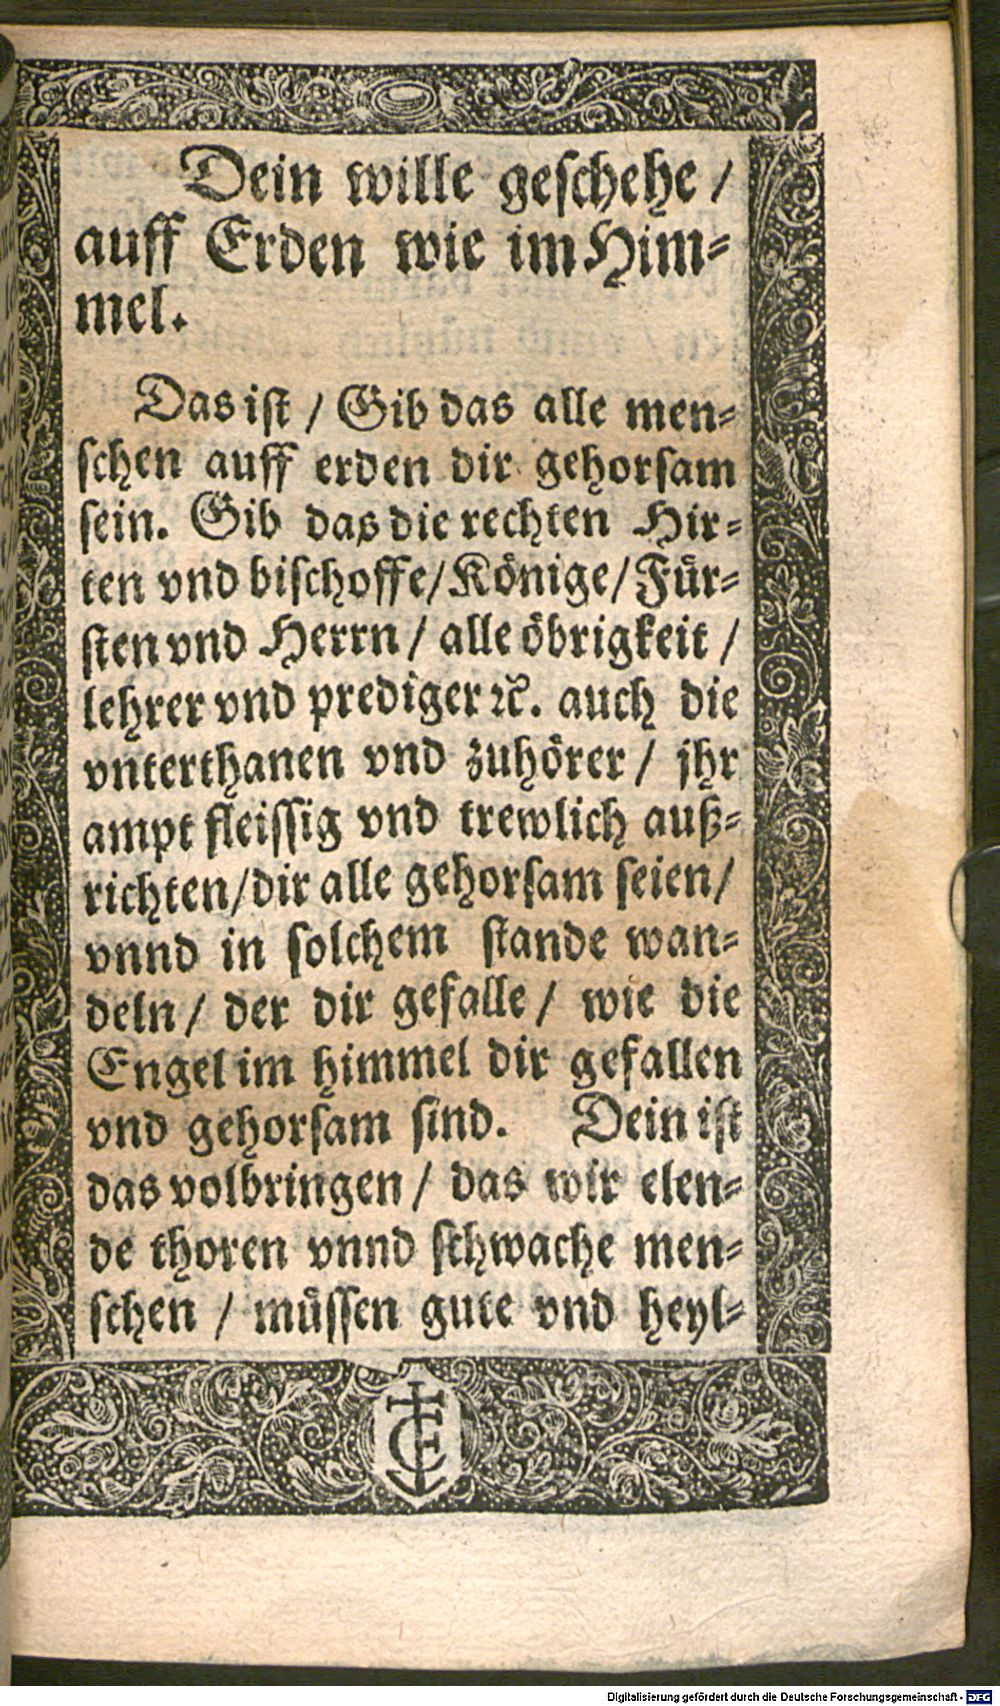 Dein wille geschehe /
auff Erden wie im Him⸗
mel.
Das ist / Gib das alle men⸗
schen auff erden dir gehorsam
sein. Gib das die rechten Hir⸗
ten vnd bischoffe/Könige/Für⸗
sten vnd Herrn / alle öbrigkeit /
lehrer vnd prediger ꝛc. auch die
vnterthanen vnd zuhörer / jhr
ampt fleissig vnd trewlich auß⸗
richten/dir alle gehorsam seien/
vnnd in solchem stande wan⸗
deln / der dir gefalle / wie die
Engel im himmel dir gefallen
vnd gehorsam sind. Dein ist
das volbringen / das wir elen⸗
de thoren vnnd schwache men⸗
schen / müssen gute vnd heyl⸗
Digitalisierung gefördert durch die Deutsche Forschungsgemeinschaft - DFG